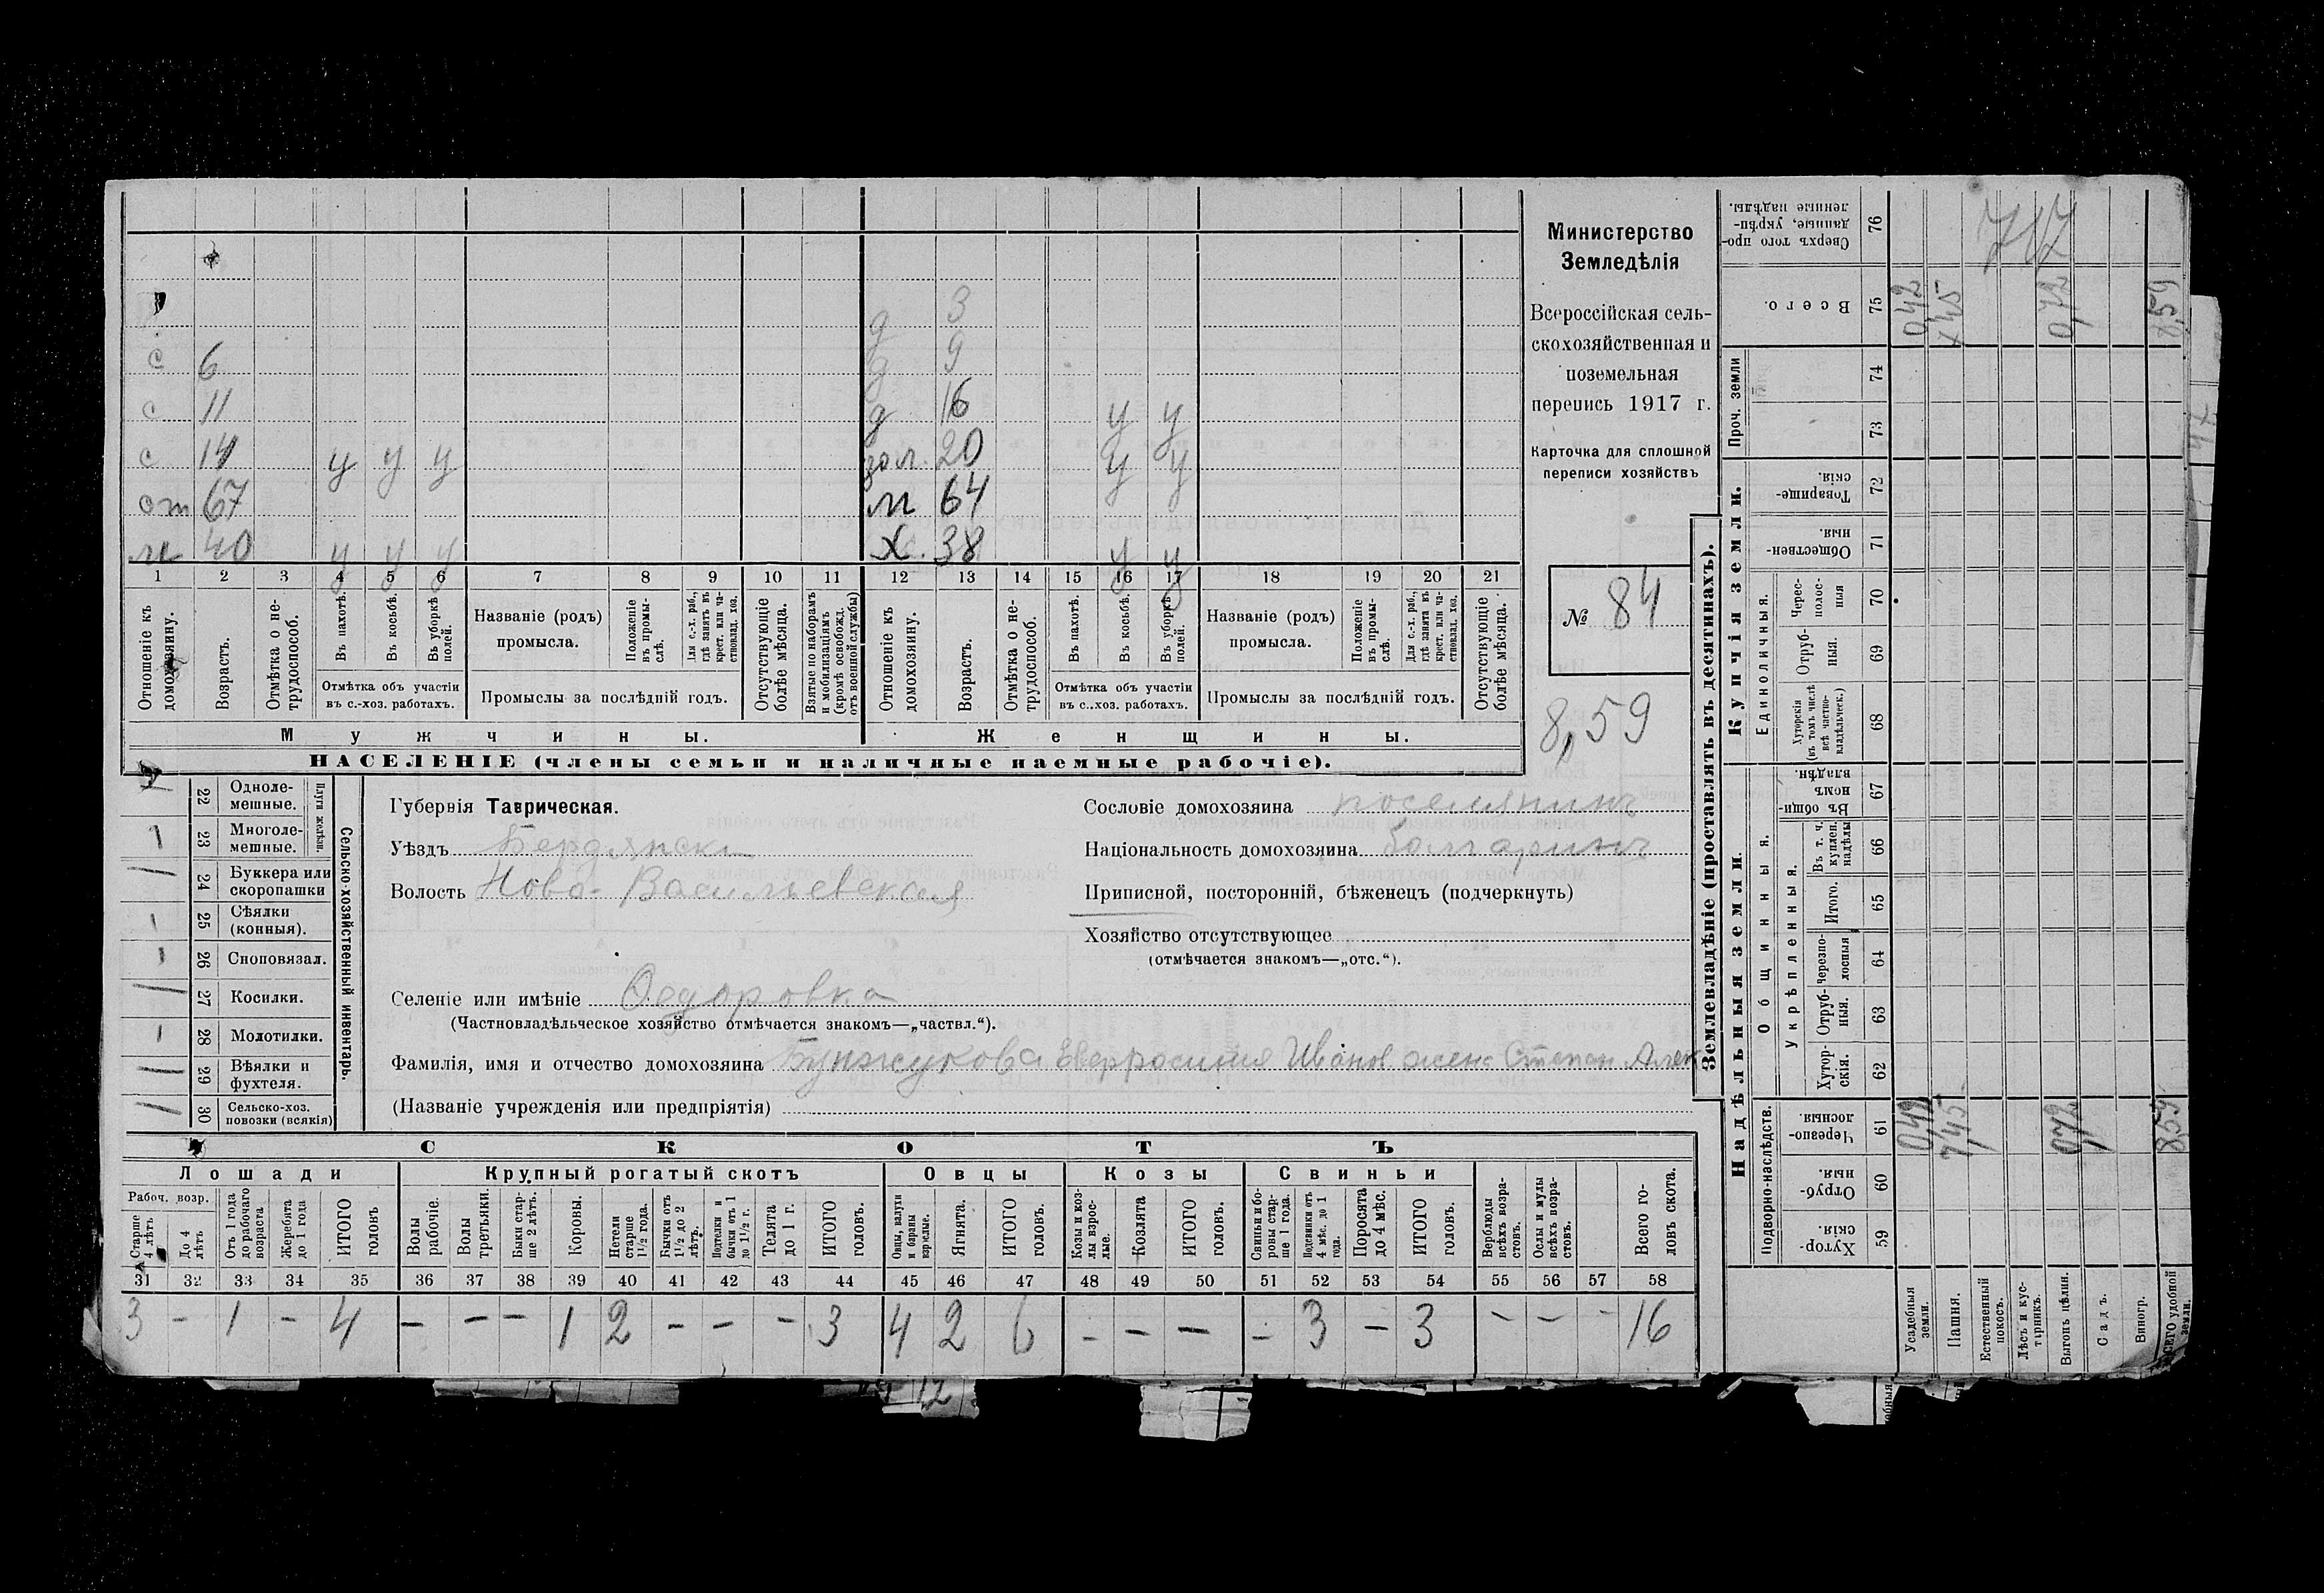 3
д
с 6 д 9
с 11 д 16 у у
с 14 у у у зол. 20 у у
от 67 м 64
м 40 у у у Х. 38 у у
1 2 3 4 5 6 7 8 9 10 11 12 13 14 15 16 17 18 19 20 21
Отношеніе къ домохозяину.
Возрастъ.
Отмѣтка о не-
трудоспособ.
Въ пахотѣ.
Въ косьбѣ.
Въ уборкѣ
полей.
Отмѣтка объ участіи
въ с.-хоз. работахъ.
Названіе (родъ)
промысла.
Положеніе
въ промы-
слѣ.
Для с.-х. раб.,
гдѣ занятъ въ
крест. или ча-
стновлад. хоз.
Промыслы за послѣдній годъ.
Отсутствующіе
болѣе мѣсяца.
Взятые по наборамъ
и мобилизаціямъ
(кромѣ освобожд.
отъ военной службы)
Отношеніе къ
домохозяину.
Возрастъ.
Отмѣтка о не-
трудоспособ.
Въ пахотѣ.
Въ косьбѣ.
Въ уборкѣ
полей.
Отмѣтка объ участіи
въ с..хоз. работахъ.
Названіе (родъ)
промысла.
Положеніе
въ промы-
слѣ.
Для с.-х. раб.,
гдѣ занята въ
крест. или ча-
стновлад. хоз.
Промыслы за послѣдній годъ.
Отсутствующіе
болѣе мѣсяца.
Мужчины.
Женщины.
НАСЕЛЕНІЕ (члены семьи и наличные наемные рабочіе).
Министерство
Земледѣлія
Всероссійская сель-
скохозяйственная и
поземельная
перепись 1917 г.
Карточка для сплошной
переписи хозяйствъ
№ 84
8,59
22 Одноле-
мешные.
23 Многоле-
мешные.
Плуги желѣзн.
24 Буккера или
скоропашки
25 Сѣялки
(конныя).
26 Сноповязал.
27 Косилки.
28 Молотилки.
29 Вѣялки и
фухтеля.
30 Сельско-хоз.
повозки (всякія)
Сельско-хозяйственный инвентарь.
Губернія Таврическая.
Уѣздъ Бердянски
Волость Ново-Васильевская
Сословіе домохозяина поселянинъ
Національность домохозяина болгаринъ
Приписной, посторонній, бѣженецъ (подчеркнуть)
Хозяйство отсутствующее
(отмѣчается знакомъ—„отс.“).
Селеніе или имѣніе Ѳедоровка
(Частновладѣльческое хозяйство отмѣчается знакомъ—„частвл.“).
Фамилія, имя и отчество домохозяина Бунжукова Евфросинія Иванов жена Степан Алек
(Названіе учрежденія или предпріятія)
СКОТЪ
Лошади Крупный рогатый скотъ Овцы Козы Свиньи
Рабоч. возр.
Старше
4 лѣтъ
До 4
лѣтъ
Отъ 1 года
до рабочаго
возраста
Жеребята
до 1 года
ИТОГО
головъ
Волы
рабочіе.
Волы
третьяки.
Быки стар-
ше 2 лѣтъ.
Коровы.
Нетели
старше
1½ года.
Бычки отъ
1½ до 2
лѣтъ.
Подтелки и
бычки отъ 1
до 1½ г.
Телята
до 1 г.
ИТОГО
головъ.
Овцы, валухи
и бараны
взрослые.
Ягнята.
ИТОГО
головъ.
Козы и коз-
лы взрос-
лые.
Козлята
ИТОГО
головъ.
Свиньи и бо-
ровы стар-
ше 1 года.
Подсвинки отъ
4 мѣс. до 1
года.
Поросята
до 4 мѣс.
ИТОГО
головъ.
Верблюды
всѣхъ возра-
стовъ.
Ослы и мулы
всѣхъ возра-
стовъ.
Всего го-
ловъ скота.
31 32 33 34 35 36 37 38 39 40 41 42 43 44 45 46 47 48 49 50 51 52 53 54 55 56 57 58
3 - 1 - 4 - - - 1 2 - - - 3 4 2 6 - - - - 3 - 3 - - - 16
Землевладѣніе (проставлять въ десятинахъ).
Надѣльныя земли.
Купчія земли.
Проч. земли
Подворно-наслѣдств.
Общинныя.
Укрѣпленныя.
Единоличныя.
Хутор-
скія. 59
Отруб-
ныя. 60
Черезпо-
лосныя. 61
Хутор-
скія. 62
Отруб-
ныя. 63
Черезпо-
лосныя 64
Итого. 65
Въ т. ч.
куплен.
надѣлы 66
Въ общи-
номъ
владѣн. 67
Хуторскія
(въ томъ числѣ
всѣ частно-
владѣльческ.) 68
Отруб-
ныя. 69
Черес-
полос-
ныя 70
Обществен-
ныя. 71
Товарище-
скія. 72
73
74
Всего. 75
Сверхъ того про-
данные, укрѣп-
ленные надѣлы. 76
Усадебныя
земли. 0,42 0,42
Пашня. 7,45 7,45
Естественный
покосъ.
Лѣсъ и кус-
тарникъ.
Выгонъ цѣлин. 0,72 0,72
Садъ.
Виногр.
ВСЕГО удобной
земли. 8,59 8,59
717
12